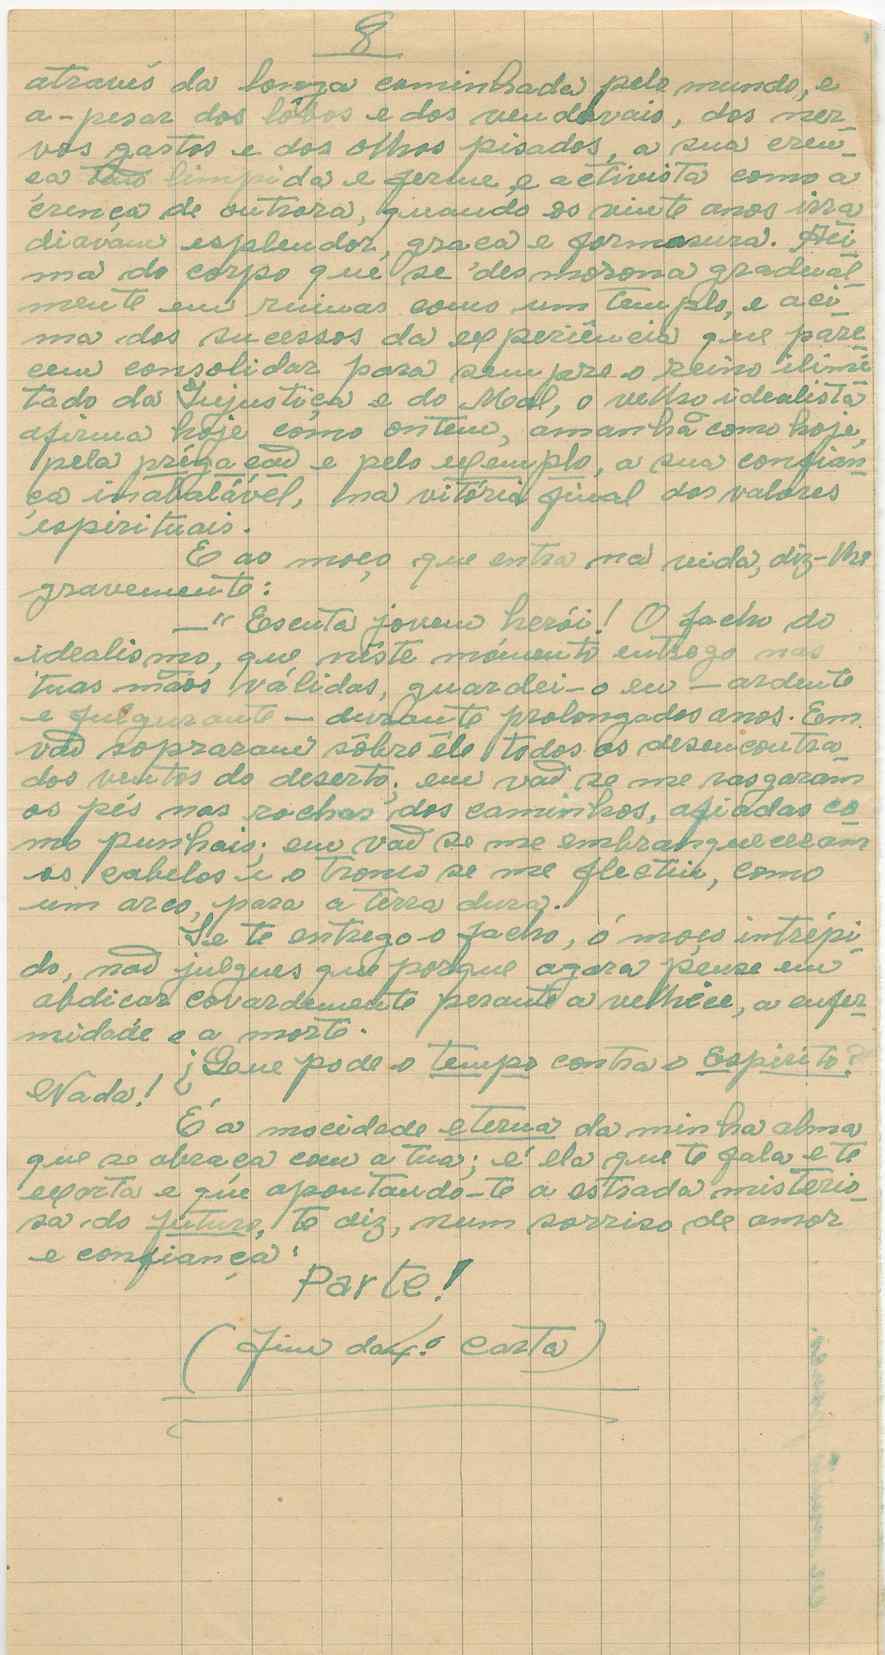 8
através da longa caminhada pelo mundo, e
a-pesar dos lôbos e dos vendavais, dos ner-
vos gastos e dos olhos pisados, a sua cren-
ça tão límpida e firme e activista como a
crença de outrora, quando os vinte anos irra
diavam esplendor, graça e formosura. Aci
ma do corpo que se desmorona gradual-
mente em ruinas como um templo, e aci-
ma dos sucessos da experiência que pare-
cem consolidar para sempre o reino ilimi-
tado da Injustiça e do Mal, o velho idealista
afirma hoje como ontem, amanhã como hoje,
pela prègação e pelo exemplo, a sua confian-
ça inabalável, na vitória final dos valores
espirituais.
E ao moço que entra na vida, diz-lhe
gravemente:
—" Escuta jovem herói! O facho do
idealismo, que nêste momento entrego nas
tuas mãos válidas, guardei-o eu — ardente
e fulgurante — durante prolongados anos. Em
vão sopraram sôbre êle todos os desencontra
dos ventos do deserto; em vão se me rasgaram
os pés nas rochas dos caminhos, afiadas co
mo punhais; em vão se me embranqueceram
os cabelos e o tronco se me flectiu, como
um arco, para a terra dura.
Se te entrego o facho, ó moço intrépi-
do, não julgues que porque agora pense em
abdicar covardemente perante a velhice, a enfer-
midade e a morte.
¿Que pode o tempo contra o Espirito?
Nada!
É a mocidade eterna da minha alma
que se abraça com a tua; é ela que te fala e te
exorta e que apontando-te a estrada misterio-
sa do futuro, te diz, num sorriso de amor
e confiança:
Parte!
(Fim da 4.ª carta)